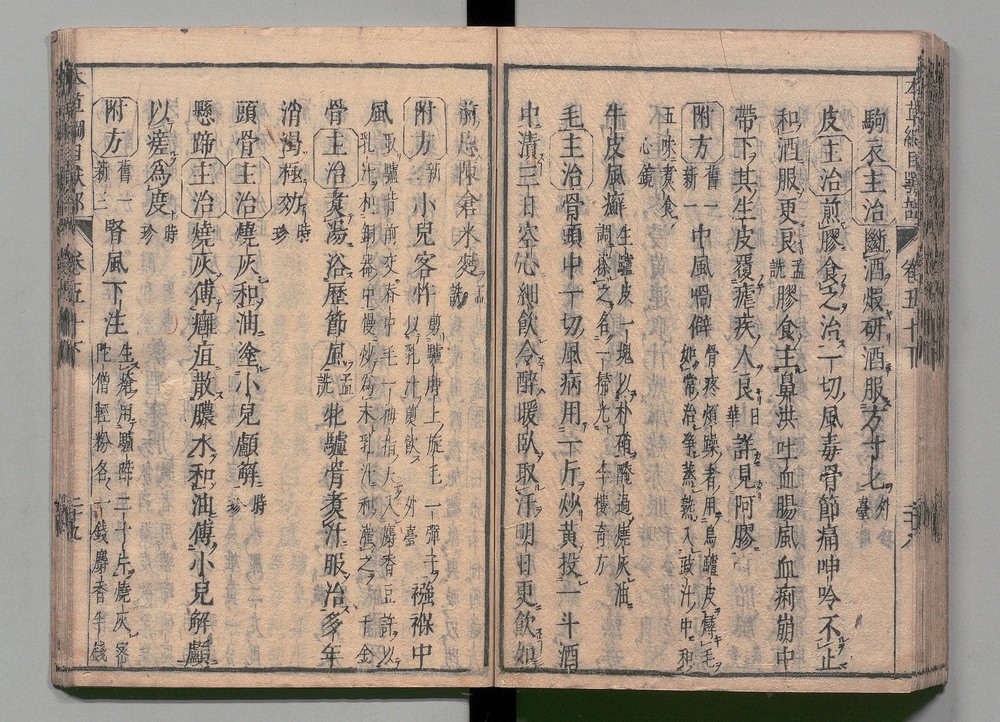 駒衣主治斷酒煅研酒服方寸匕外臺
皮主治煎膠食之治一切風毒骨節痛呻吟不止
和酒服更良孟詵膠食主鼻洪吐血腸風血痢崩中
帶下其生皮覆瘧疾人良日華詳見阿膠
附方舊一新一中風喎僻骨疼煩躁者用烏驢皮燖毛如常治淨蒸熟入豉汁中和
五味煮食心鏡
牛皮風癬生驢皮一塊以朴硝醃過燒灰油調搽之名一掃光李樓奇方
毛主治骨頭中一切風病用一斤炒黃投一斗酒
中漬三日空心細飲令醉暖臥取汗明日更飲如
前忌陳倉米麪孟詵
附方新小兒客忤剪驢膊上旋毛一彈子以乳汁煎飲外臺襁褓中
風取驢背前交脊中毛一拇指大入麝香豆許以乳汁和銅器中慢炒為末乳汁和灌之千金
骨主治煮湯浴歷節風孟詵牝驢骨煮汁服治多年
消渴極效時珍
頭骨主治燒灰和油塗小兒顱解時珍
懸蹄主治燒灰傅癰疽散膿水和油傅小兒解顱
以瘥為度時珍
附方舊一新三腎風下注生瘡用驢蹄二十片燒灰密陀僧輕粉各一錢麝香半錢
本草綱目獸部
卷五十下